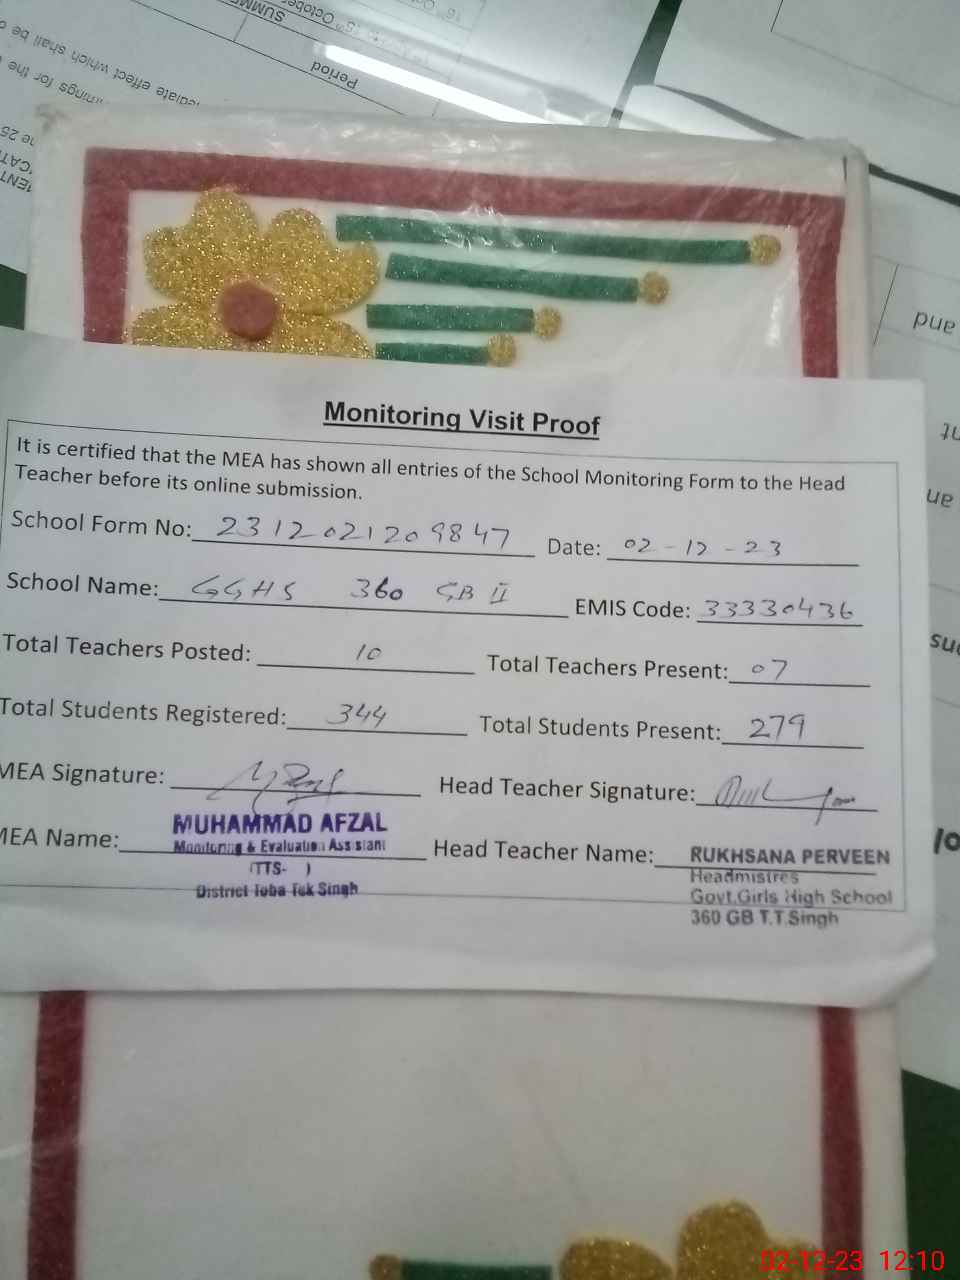 16
October
October
SUMM
Period
ediate effect which shall be
for the
and
Monitoring Visit Proof
It is certified that the MEA has shown all entries of the School Monitoring Form to the Head
Teacher before its online submission.
School Form No: 2312021209847 Date: 02-12-23
School Name: GGHS 360 GB II EMIS Code: 33330436
Total Teachers Posted: 10 Total Teachers Present: 07
Total Students Registered: 344 Total Students Present: 279
MEA Signature: Head Teacher Signature:
MEA Name: MUHAMMAD AFZAL Head Teacher Name: RUKHSANA PERVEEN
Monitoring & Evaluation Assistant Headmistres
(TTS- ) Govt.Girls High School
District Toba Tek Singh 360 GB T.T.Singh
02-12-23 12:10